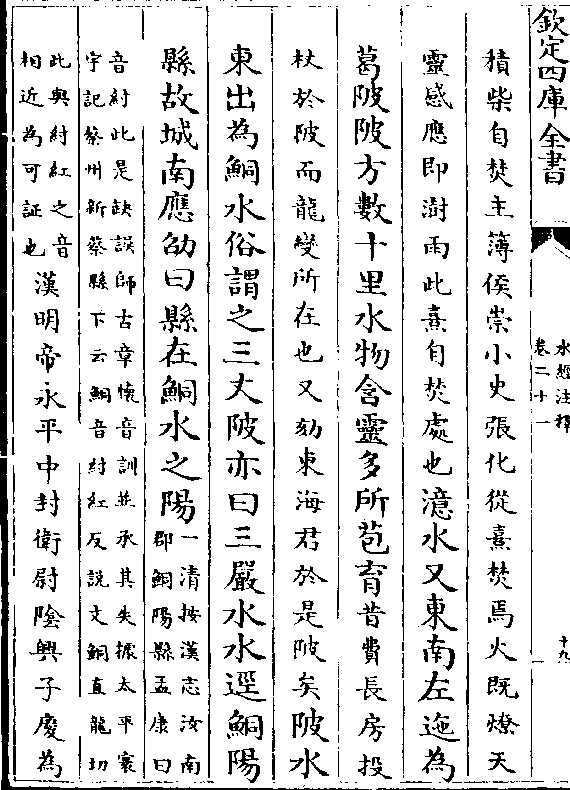 欽定四庫全書
水經注釋
卷二十一
十九
積柴自焚主簿侯崇小史張化從熹焚焉火既燎天
靈感應即澍雨此熹自焚處也澺水又東南左迤為
葛陂陂方數十里水物含靈多所苞育昔費長房投
杖於陂而龍變所在也又劾東海君於是陂矣陂水
東出為鮦水俗謂之三丈陂亦曰三嚴水水逕鮦陽
縣故城南應劭曰縣在鮦水之陽一清按漢志汝南
郡鮦陽縣孟康曰
音紂此是缺誤師古章懐音訓並承其失據太平寰
宇記蔡州新蔡縣下云鮦音紂紅反説文鮦直龍切
此與紂紅之音
相近為可証也漢明帝永平中封衛尉隂興子慶為